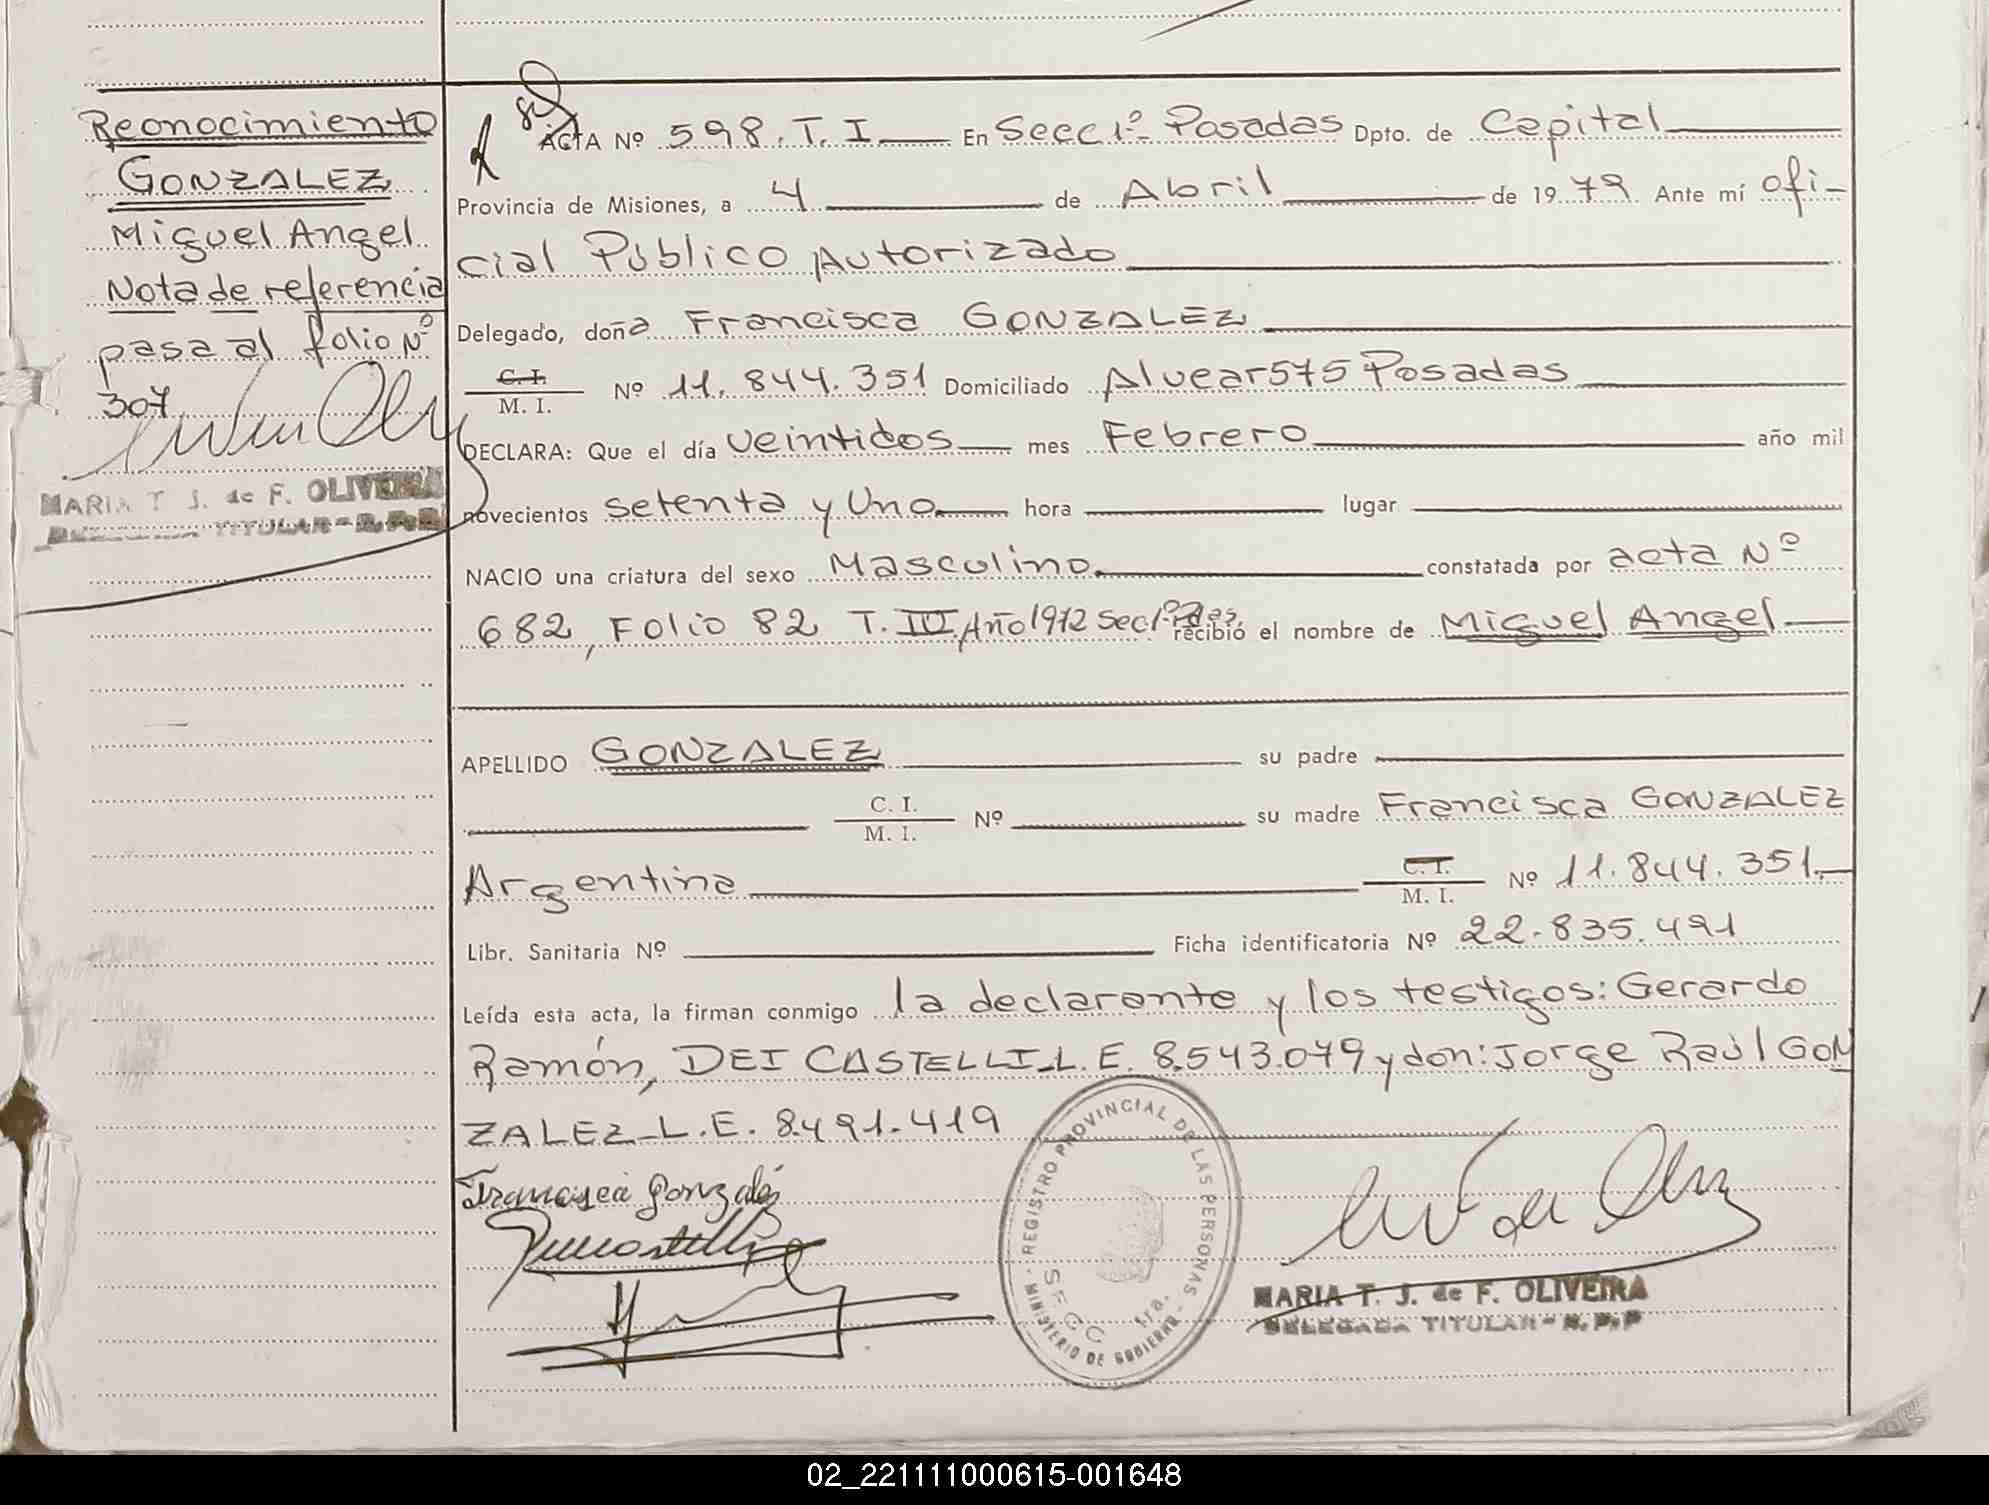 Reonocimiento
GONZALEZ
Miguel Angel
Nota de referencia
pasa al folio Nº
307
MARIA T. J. de F. OLIVEIRA
DELEGADA TITULAR - R. P. P
ACTA Nº 598. T. I En Secc 1º Posadas Dpto. de Capital
Provincia de Misiones, a 4 de Abril de 1979 Ante mí ofi-
cial Público Autorizado
Delegado, doña Francisca GONZALEZ
C. I.
M. I. Nº 11.844.351 Domiciliado Alvear 575 Posadas
DECLARA: Que el día veintidos mes Febrero año mil
novecientos setenta y Uno hora lugar
NACIO una criatura del sexo Masculino constatada por acta Nº
682, Folio 82 T. III, Año 1972 Sec 1º Pdas. recibió el nombre de Miguel Angel
APELLIDO GONZALEZ su padre
C. I.
M. I. Nº su madre Francisca GONZALEZ
Argentina C. I.
M. I. Nº 11.844.351.
Libr. Sanitaria Nº Ficha identificatoria Nº 22.835.491
Leída esta acta, la firman conmigo la declarante y los testigos: Gerardo
Ramón, DEI CASTELLI_L.E. 8.543.079 y don: Jorge Raúl GON
ZALEZ_L.E. 8.491.419
Francisca Gonzalés
REGISTRO PROVINCIAL DE LAS PERSONAS
SECC 1ra.
MINISTERIO DE GOBIERNO
MARIA T. J. de F. OLIVEIRA
DELEGADA TITULAR - R. P. P
02_221111000615-001648